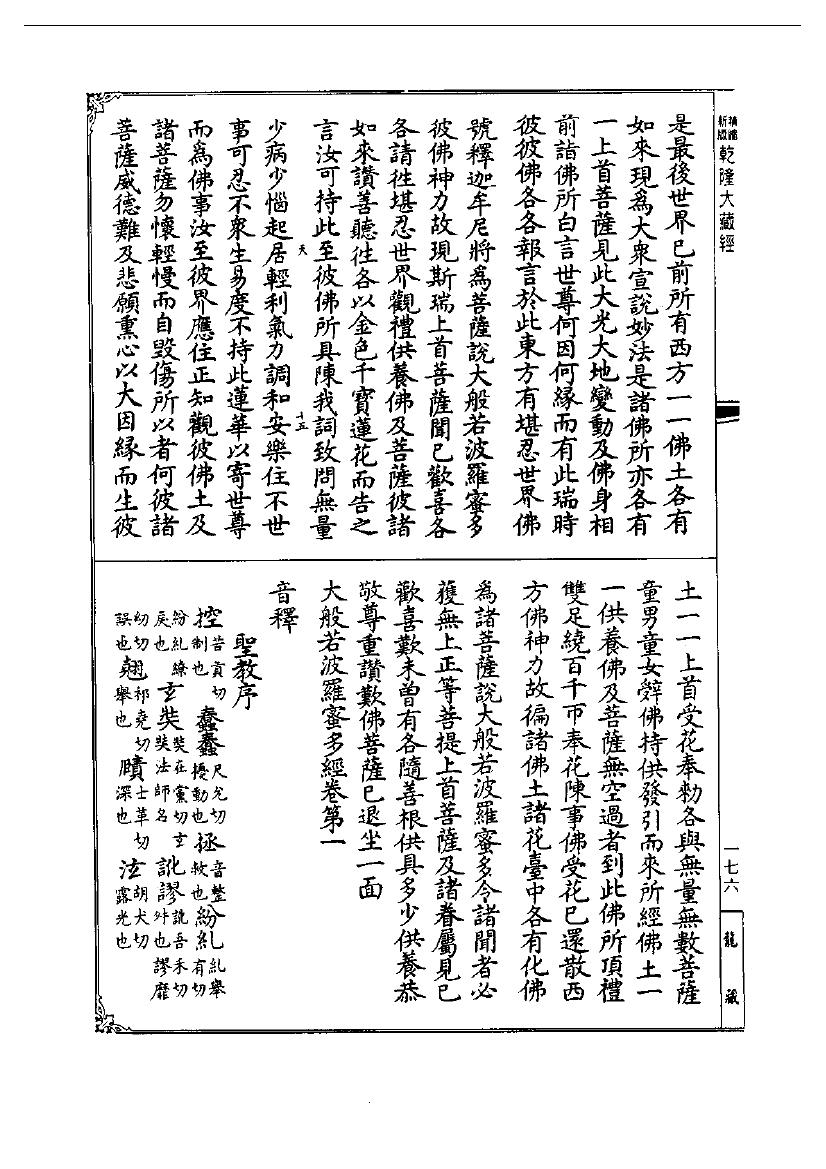 乾隆大藏經
是最後世界已前所有西方一一佛土各有
如來現為大衆宣說妙法是諸佛所亦各有
一上首菩薩見此大光大地變動及佛身相
前詣佛所白言世尊何因何緣而有此瑞時
彼彼佛各各報言於此東方有堪忍世界佛
號釋迦牟尼將為菩薩說大般若波羅蜜多
彼佛神力故現斯瑞上首菩薩聞已歡喜各
各請往堪忍世界觀禮供養佛及菩薩彼諸
如來讚善聽往各以金色千寶蓮花而告之
言汝可持此至彼佛所具陳我詞致問無量
天
十五
少病少惱起居輕利氣力調和安樂住不世
事可忍不衆生易度不持此蓮華以寄世尊
而為佛事汝至彼界應住正知觀彼佛土及
諸菩薩勿懷輕慢而自毀傷所以者何彼諸
菩薩威德難及悲願熏心以大因緣而生彼
土一一上首受花奉勅各與無量無數菩薩
童男童女辤佛持供發引而來所經佛土一
一供養佛及菩薩無空過者到此佛所頂禮
雙足繞百千帀奉花陳事佛受花已還散西
方佛神力故徧諸佛土諸花臺中各有化佛
為諸菩薩說大般若波羅蜜多令諸聞者必
獲無上正等菩提上首菩薩及諸眷屬見已
歡喜歎未曾有各隨善根供具多少供養恭
敬尊重讚歎佛菩薩已退坐一面
大般若波羅蜜多經卷第一
音釋
聖教序
控苦貢切制也 蠢蠢尺允切擾動也 拯音整救也 紛糺糺舉有切
紛糺繚戾也 玄奘奘在黨切玄奘法師名 訛謬訛吾禾切舛也謬靡
幼切誤也 翹祁堯切舉也 賾士革切深也 泫胡犬切露光也
一七六
龍藏